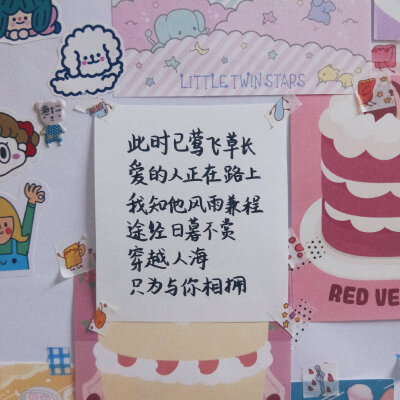 LITTLE TWIN STARS
此时已莺飞草长
爱的人正在路上
我知他风雨兼程
途经日暮不赏
穿越人海
只为与你相拥
RED VE